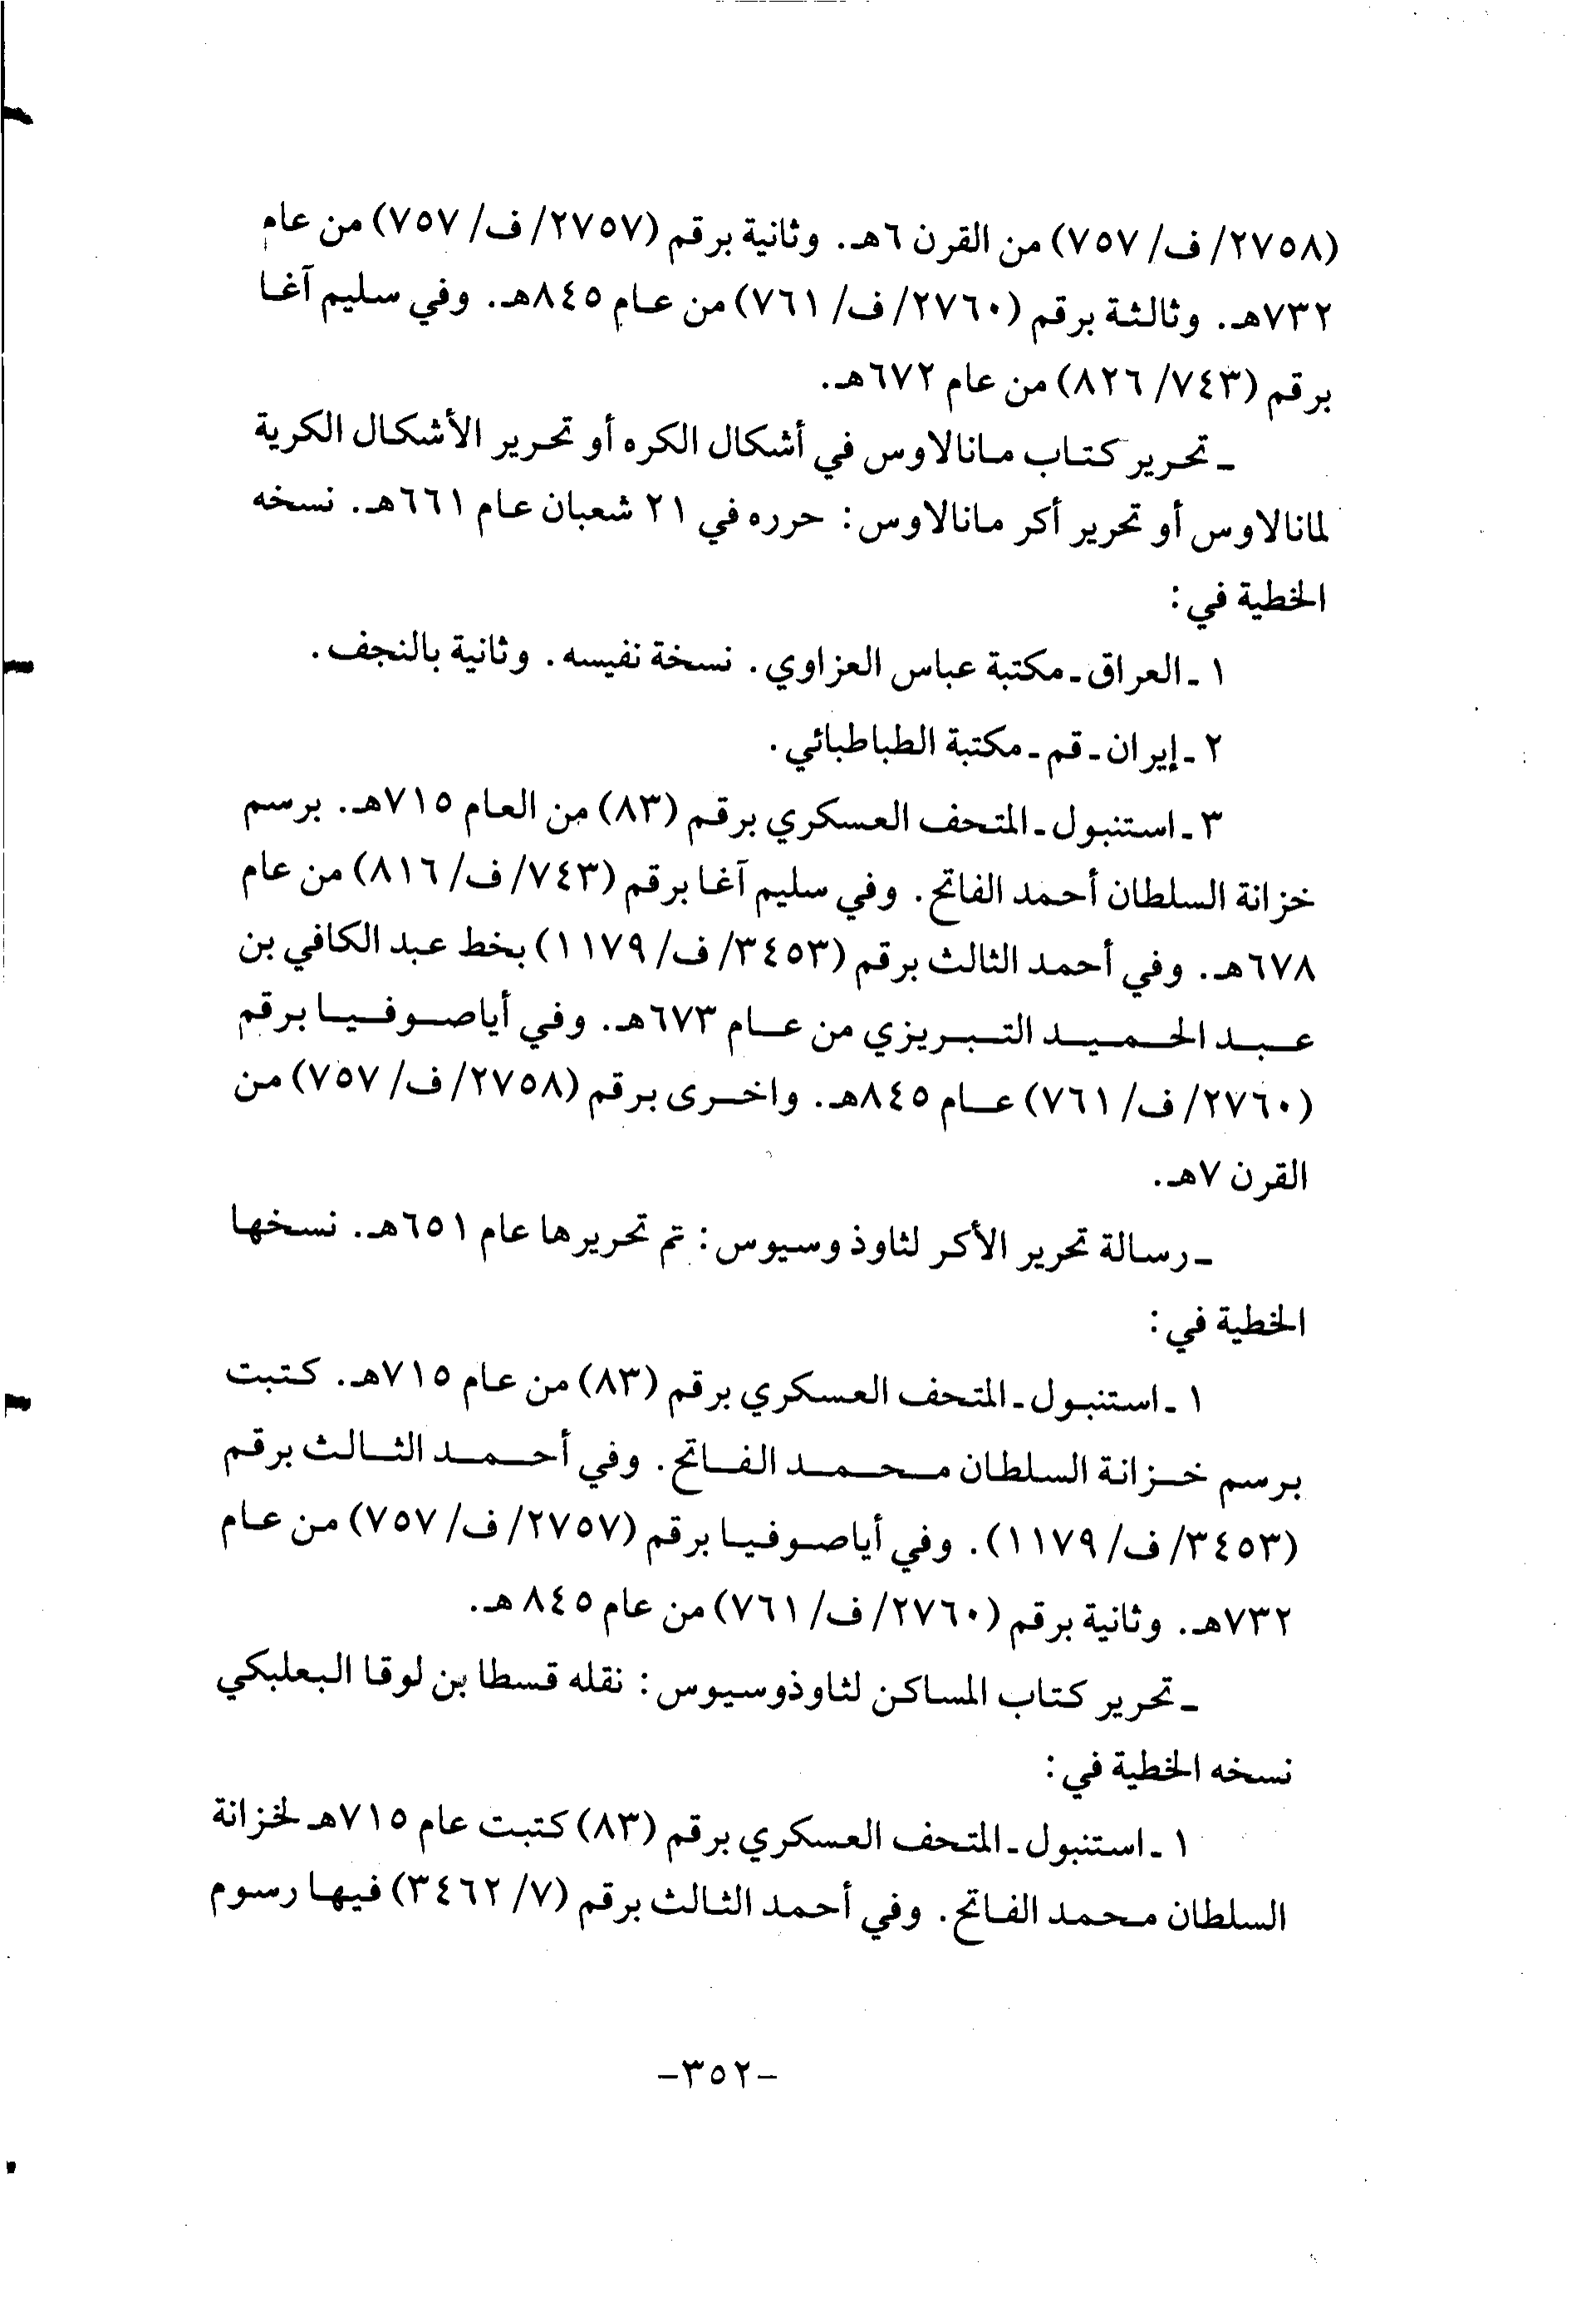 (٢٧٥٨/ ف/ ٧٥٧) من القرن ٦هـ. وثانية برقم (٢٧٥٧/ ف/ ٧٥٧) من عام
٧٣٢هـ. وثالثة برقم (٢٧٦٠/ ف/ ٧٦١) من عام ٨٤٥هـ. وفي سليم آغا
برقم (٧٤٣/ ٨٢٦) من عام ٦٧٢هـ.
ـ تحرير كتاب مانالاوس في أشكال الكره أو تحرير الأشكال الكرية
لمانالاوس أو تحرير أكر مانالاوس: حرره في ٢١ شعبان عام ٦٦١هـ. نسخه
الخطية في:
١ ـ العراق ـ مكتبة عباس العزاوي. نسخة نفيسه. وثانية بالنجف.
٢ ـ إيران ـ قم ـ مكتبة الطباطبائي.
٣ ـ استنبول ـ المتحف العسكري برقم (٨٣) من العام ٧١٥هـ. برسم
خزانة السلطان أحمد الفاتح. وفي سليم آغا برقم (٧٤٣/ ف/ ٨١٦) من عام
٦٧٨هـ. وفي أحمد الثالث برقم (٣٤٥٣/ ف/ ١١٧٩) بخط عبد الكافي بن
عبد الحميد التبريزي من عام ٦٧٣هـ. وفي أياصوفيا برقم
(٢٧٦٠/ ف/ ٧٦١) عام ٨٤٥هـ. واخرى برقم (٢٧٥٨/ ف/ ٧٥٧) من
القرن ٧هـ.
ـ رسالة تحرير الأكر لثاوذوسيوس: تم تحريرها عام ٦٥١هـ. نسخها
الخطية في:
١ ـ استنبول ـ المتحف العسكري برقم (٨٣) من عام ٧١٥هـ. كتبت
برسم خزانة السلطان محمد الفاتح. وفي أحمد الثالث برقم
(٣٤٥٣/ ف/ ١١٧٩). وفي أياصوفيا برقم (٢٧٥٧/ ف/ ٧٥٧) من عام
٧٣٢هـ. وثانية برقم (٢٧٦٠/ ف/ ٧٦١) من عام ٨٤٥ هـ.
ـ تحرير كتاب المساكن لثاوذوسيوس: نقله قسطا بن لوقا البعلبكي
نسخه الخطية في:
١ ـ استنبول ـ المتحف العسكري برقم (٨٣) كتبت عام ٧١٥هـ لخزانة
السلطان محمد الفاتح. وفي أحمد الثالث برقم (٧/ ٣٤٦٢) فيها رسوم
-٣٥٢-